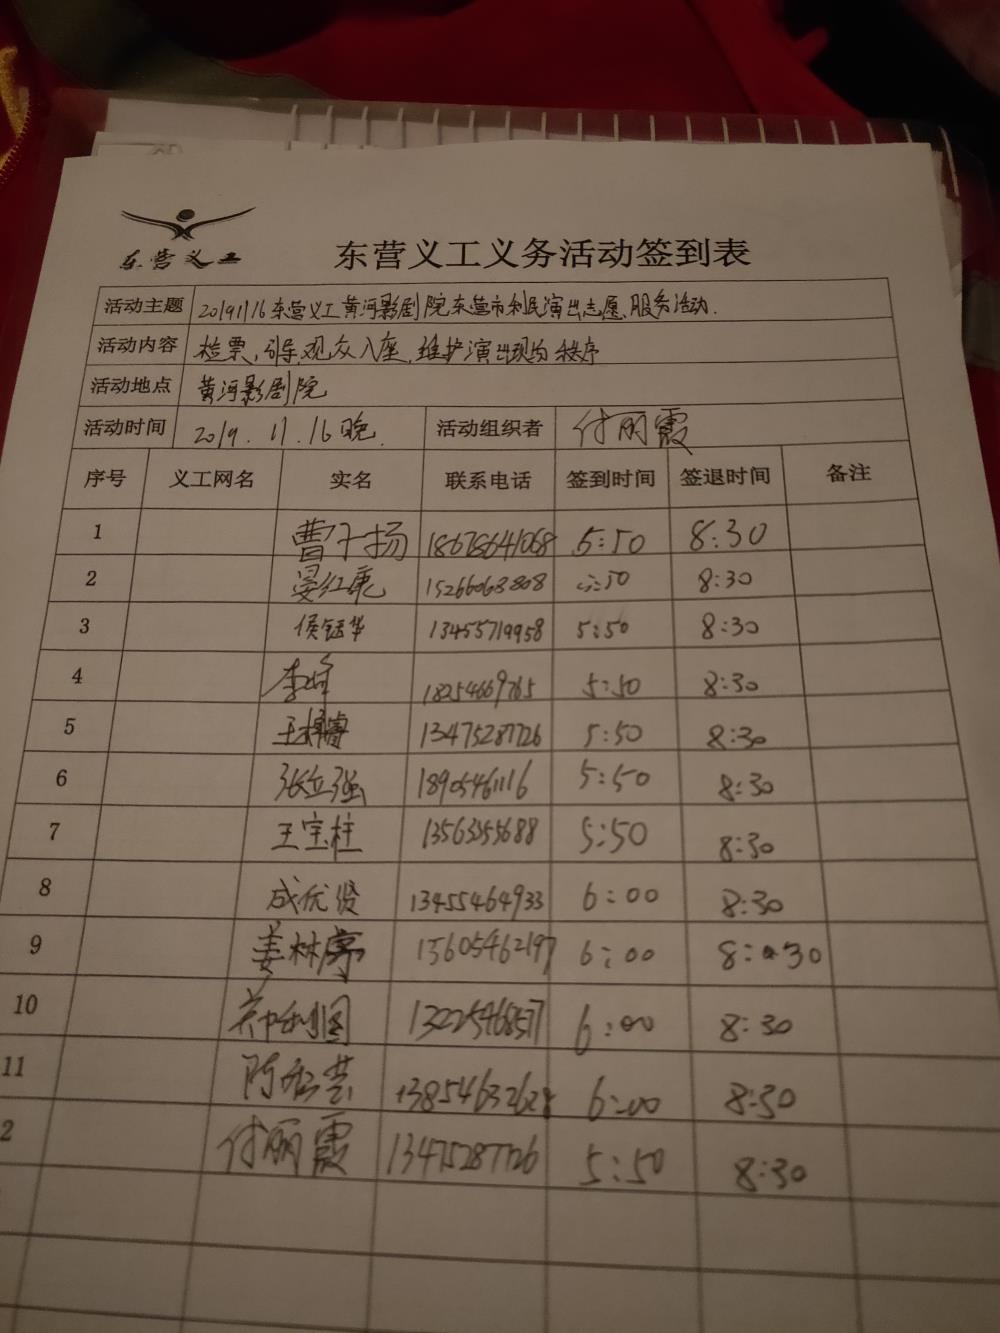 东营义工
东营义工义务活动签到表
活动主题 20191116东营义工黄河影剧院东营市利民演出志愿服务活动.
活动内容 检票,引导,观众入座,维护演出现的秩序
活动地点 黄河影剧院
活动时间 2019.11.16晚. 活动组织者 付丽霞
序号 义工网名 实名 联系电话 签到时间 签退时间 备注
1 曹子扬 18678641068 5:50 8:30
2 晏红康 15266063808 5:50 8:30
3 侯钰华 13455719958 5:50 8:30
4 李峰 18254669765 5:50 8:30
5 13475287726 5:50 8:30
6 张立强 18905461116 5:50 8:30
7 王宝柱 13563355688 5:50 8:30
8 成优贤 13455464933 6:00 8:30
9 姜林 15605462197 6:00 8:30
10 13225468577 6:00 8:30
11 13854632628 6:00 8:30
2 付丽霞 13475287726 5:50 8:30